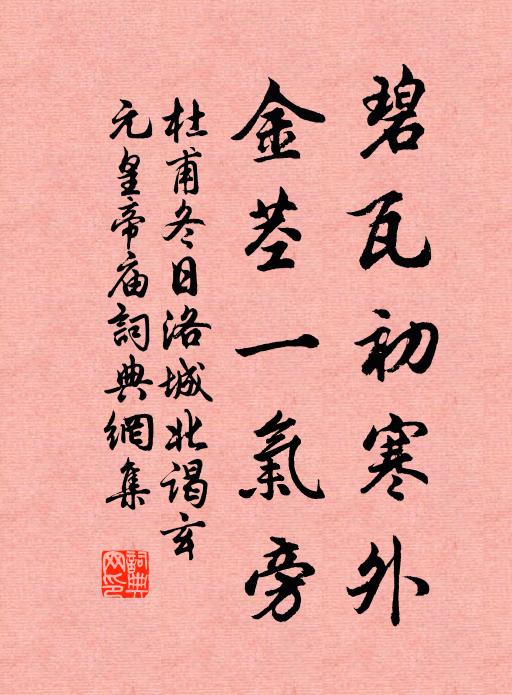 碧瓦初寒外
金茎一氣旁
杜甫冬日洛城北謁玄
元皇帝庙詞典網集
詞典网印